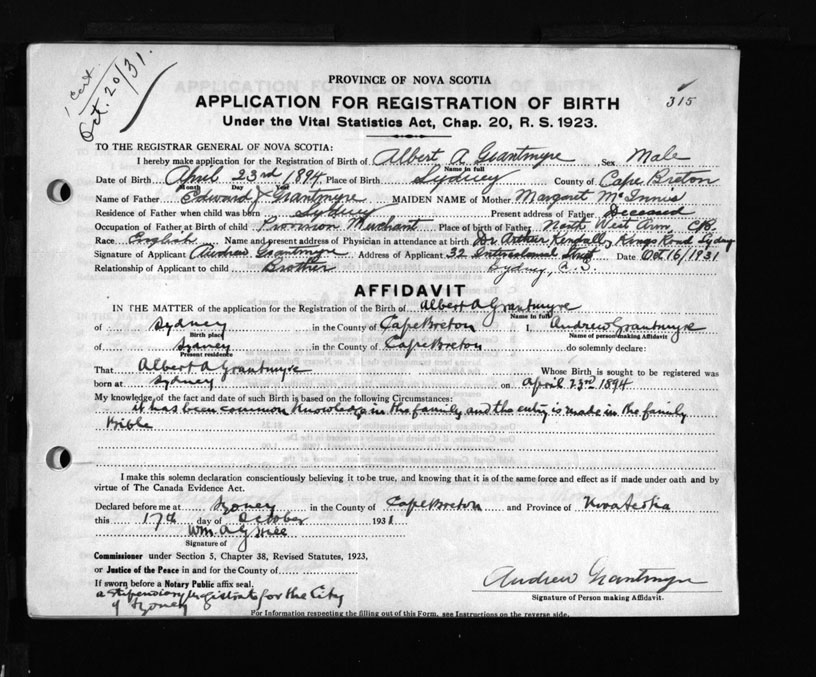 1 Cert
Oct. 20/31.
315
PROVINCE OF NOVA SCOTIA
APPLICATION FOR REGISTRATION OF BIRTH
Under the Vital Statistics Act, Chap. 20, R. S. 1923.
TO THE REGISTRAR GENERAL OF NOVA SCOTIA:
I hereby make application for the Registration of Birth of Albert A Grantmyre Sex Male
Name in full
Date of Birth April 23rd 1894 Place of Birth Sydney County of Cape Breton
Month Day Year
Name of Father Edward J Grantmyre MAIDEN NAME of Mother Margaret McInnis
Residence of Father when child was born Sydney Present address of Father Deceased
Occupation of Father at Birth of child Provision Merchant Place of birth of Father North West Arm, C.B.
Race English Name and present address of Physician in attendance at birth Dr Arthur Kendall, Kings Road Sydney
Signature of Applicant Andrew Grantmyre Address of Applicant 32 Intercolonial Date Oct 16/1931
Relationship of Applicant to child Brother Sydney, N.S.
AFFIDAVIT
IN THE MATTER of the application for the Registration of the Birth of Albert A Grantmyre
Name in full
of Sydney in the County of Cape Breton I, Andrew Grantmyre
Birth place Name of person making Affidavit
of Sydney in the County of Cape Breton do solemnly declare:
Present residence
That Albert A Grantmyre Whose Birth is sought to be registered was
born at Sydney on April 23rd 1894
My knowledge of the fact and date of such Birth is based on the following Circumstances:
It has been common knowledge in the family and the entry is made in the family
Bible
I make this solemn declaration conscientiously believing it to be true, and knowing that it is of the same force and effect as if made under oath and by
virtue of The Canada Evidence Act.
Declared before me at Sydney in the County of Cape Breton and Province of Nova Scotia
this 17th day of October 1931
Wm. A G Hill
Signature of
Commissioner under Section 5, Chapter 38, Revised Statutes, 1923,
or Justice of the Peace in and for the County of
If sworn before a Notary Public affix seal.
a Stipendiary Magistrate for the City
of Sydney
Andrew Grantmyre
Signature of Person making Affidavit.
For Information respecting the filling out of this Form, see Instructions on the reverse side.